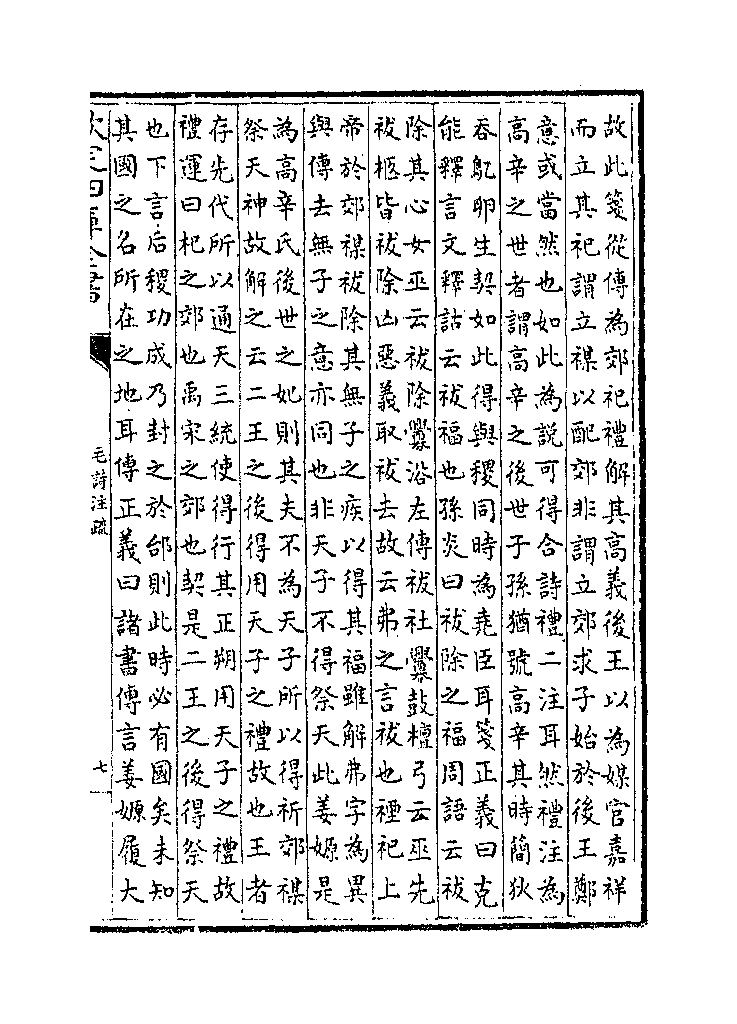 故此箋從傳為郊祀禮解其高義後王以為媒官嘉祥
而立其祀謂立禖以配郊非謂立郊求子始於後王鄭
意或當然也如此為說可得合詩禮二注耳然禮注為
高辛之世者謂高辛之後世子孫猶號高辛其時簡狄
吞鳦卵生契如此得與稷同時為堯臣耳箋正義曰克
能釋言文釋詁云祓福也孫炎曰祓除之福周語云祓
除其心女巫云祓除釁浴左傳祓社釁鼓檀弓云巫先
祓柩皆祓除凶惡義取祓去故云弗之言祓也禋祀上
帝於郊禖祓除其無子之疾以得其福雖解弗字為異
與傳去無子之意亦同也非天子不得祭天此姜嫄是
為高辛氏後世之妃則其夫不為天子所以得祈郊禖
祭天神故解之云二王之後得用天子之禮故也王者
存先代所以通天三統使得行其正朔用天子之禮故
禮運曰杞之郊也禹宋之郊也契是二王之後得祭天
也下言后稷功成乃封之於邰則此時必有國矣未知
其國之名所在之地耳傳正義曰諸書傳言姜嫄履大
欽定四庫全書
毛詩注疏
七